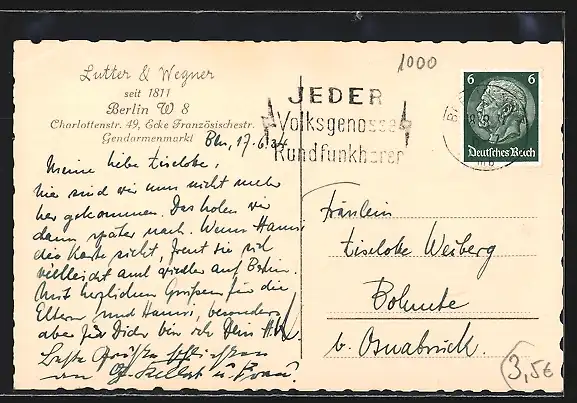 Lutter & Wegner
seit 1811
Berlin W 8
Charlottenstr. 49, Ecke Französischestr.
Gendarmenmarkt
Bln, 17.6.34
Meine liebe Liselotte,
hie sind wir nun nicht mehr
her gekommen. Das holen wir
dann später nach. Wenn Hanni
die Karte sieht, freut sie sich
vielleicht auch wieder auf Berlin.
Mit herzlichen Grüßen für die
Eltern und Hanni, besonders
aber für Dich bin ich Dein
Beste Grüße
an u. Frau.
1000
JEDER
Volksgenosse
Rundfunkhörer
6 6
Deutsches Reich
Fräulein
Liselotte Weiberg
Bohmte
b. Osnabrück.
3,5€